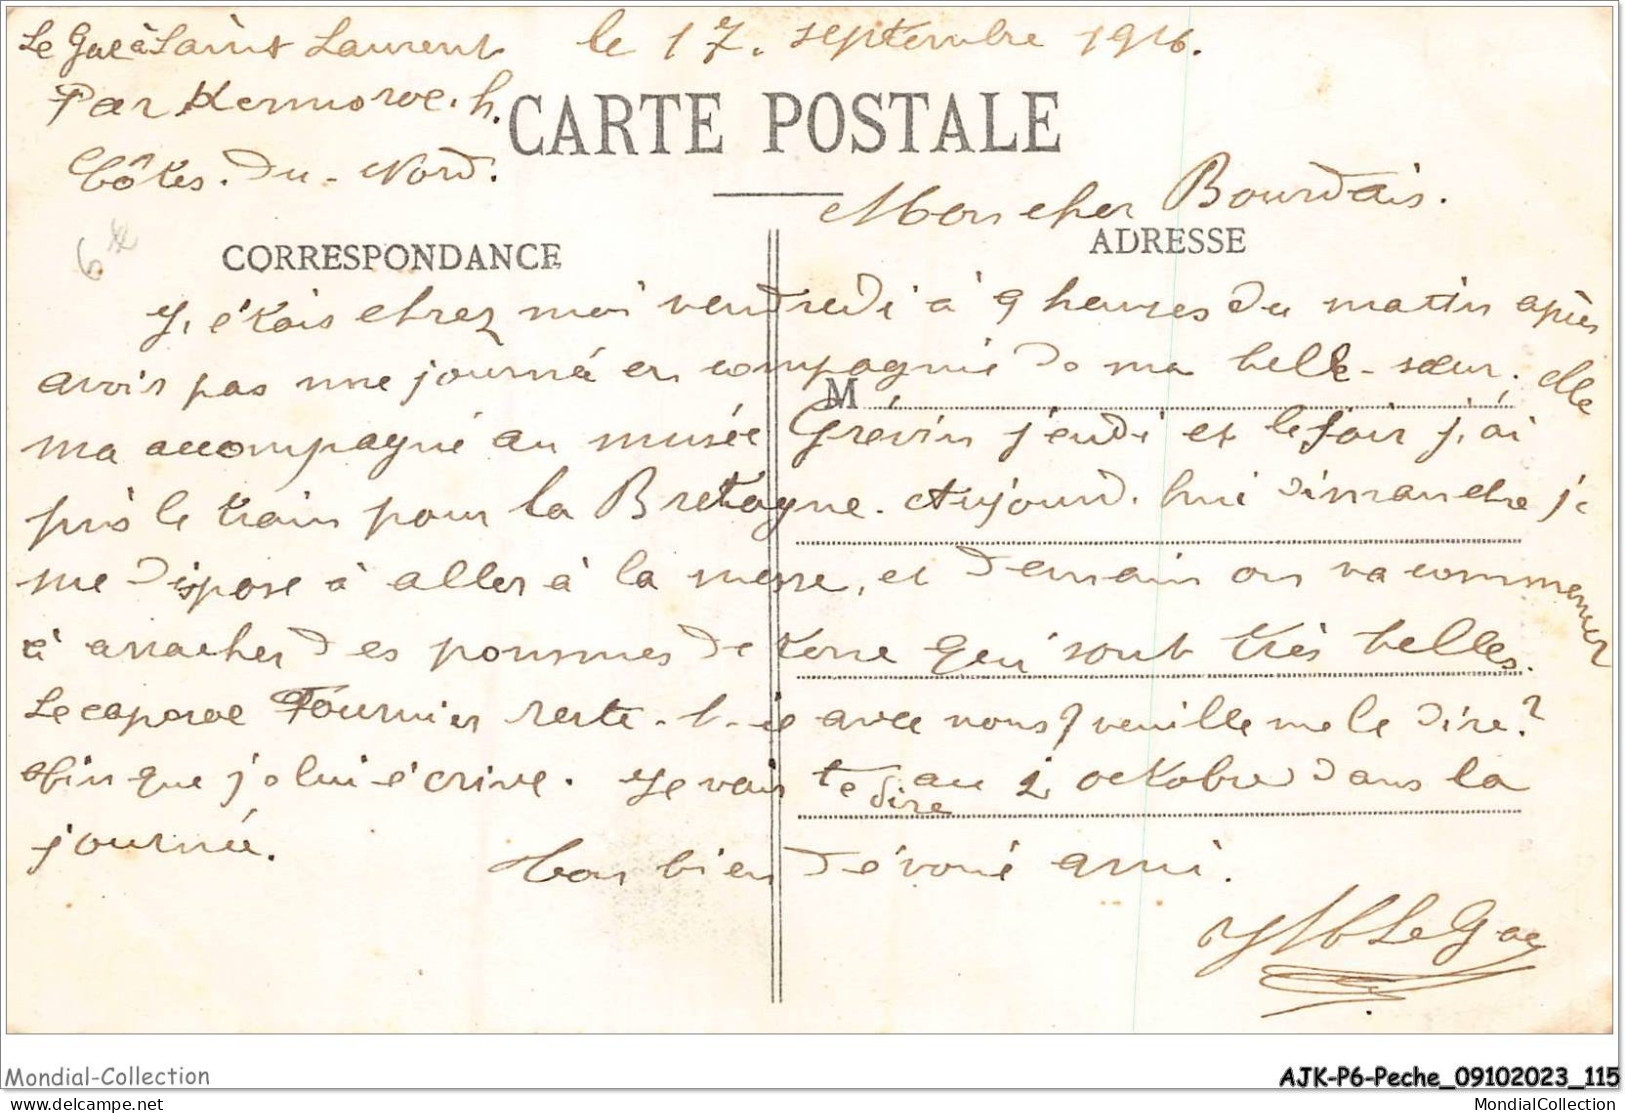 Le Gac à Saint Laurent le 17. septembre 1916.
Par Kermoroc.h.
CARTE POSTALE
Côtes. du - Nord.
Mon cher Bourdais.
6
CORRESPONDANCE
ADRESSE
J, étais chez moi vendredi à 9 heures du matin après
avoir pas une journé en compagnie de ma belle-sœur. elle
M
ma accompagné au musée Grévin jeudi et le soir j, ai
pris le train pour la Bretagne. Aujourd. hui dimanche je
me dispose à aller à la messe, et demain on va commencer
à arracher des pommes de terre qui sont très belles.
Le caporal Fournier reste-t-il avec vous? veuille me le dire?
Afin que je lui écrive. Je vais te dire au 2 octobre dans la
journée.
Ton bien dévoué ami.
Le Gac
Mondial-Collection
AJK-P6-Peche_09102023_115
delcampe.net
MondialCollection